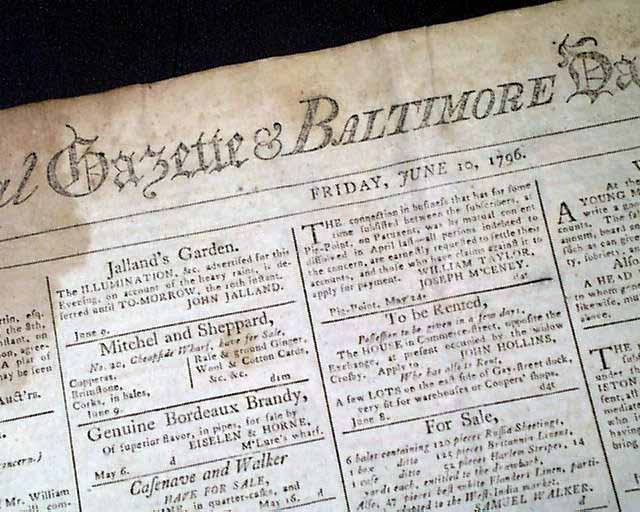 al Gazette & BALTIMORE Da
FRIDAY, JUNE 10, 1796.
Jalland's Garden.
The ILLUMINATION, &c. advertised for this
Evening, on account of the heavy rains, is de-
ferred until TO-MORROW, the 10th instant.
JOHN JALLAND.
June 9.
Mitchel and Sheppard,
No. 20, Cheapside Wharf, have for Sale,
Copperas,
Brimstone,
Corks, in bales,
Race & ground Ginger,
Wool & Cotton Cards,
&c. &c.
June 9. d1m
Genuine Bordeaux Brandy,
Of superior flavor, in pipes, for sale by
EISELEN & HORNE,
May 6. d M'Lure's wharf.
Casenave and Walker
HAVE FOR SALE,
WINE, in quarter-casks, and
May 16. d
THE connection in business that has for some
time subsisted between the subscribers, at
Pig-Point, on Patuxent, was by mutual consent
dissolved in April last—all persons indebted to
the concern, are earnestly requested to settle their
accounts, and those who have claims against it to
apply for payment. WILLIAM TAYLOR,
JOSEPH M'CENEY.
Pig-Point, May 24.
To be Rented,
Possession to be given in a few days,
The HOUSE in Commerce-street, opposite the
Exchange, at present occupied by the widow
Crosby. Apply to JOHN HOLLINS,
Who has also to Rent,
A few LOTS on the east side of Gay-street dock,
very fit for warehouses or Coopers' shops.
June 8. d4t
For Sale,
6 bales containing 120 pieces Russia Sheetings,
1 box ditto 125 pieces Britannia Linens,
1 case ditto 52 pieces Harlem Stripes, 14
yards each, entitled to the drawback,
Also, 47 pieces bed white Flanders Linen, parti-
adapted to the West-India market.
SAMUEL WALKER.
At the
A YOUNG
write a good
counts. The
board and
such as can give
ty, sobriety
Also
A HEAD
to whom
likewise,
above.
THE
under
ISTON
sent, all
Mr. William